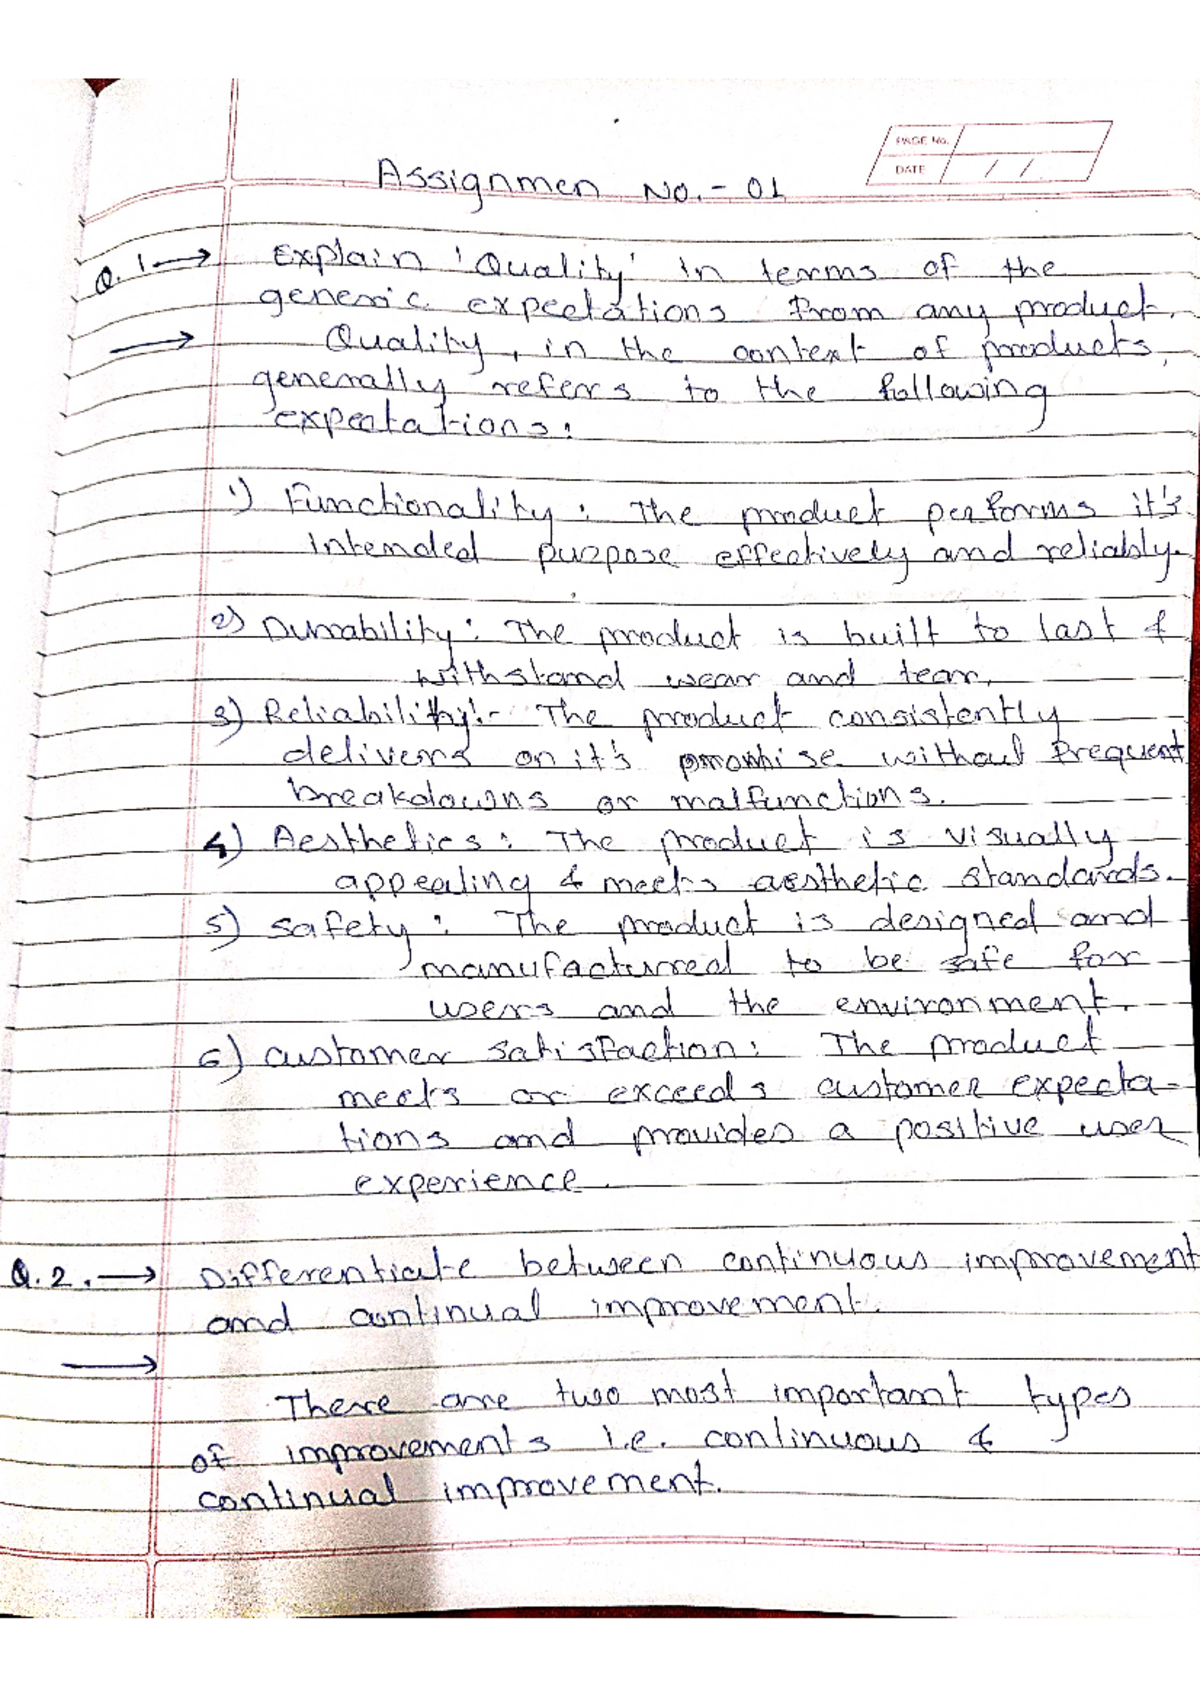 PAGE No.
DATE / /
Assignmen No.- 01
Q. 1 → Explain 'Quality' in terms of the
generic expectations from any product.
→ Quality, in the context of products,
generally refers to the following
expectations:
1) Functionality: The product performs it's
intended purpose effectively and reliably.
2) Durability: The product is built to last &
withstand wear and tear.
3) Reliability:- The product consistently
delivers on it's promise without frequent
breakdowns or malfunctions.
4) Aesthetics: The product is visually
appealing & meets aesthetic standards.
5) Safety: The product is designed and
manufactured to be safe for
users and the environment.
6) customer satisfaction: The product
meets or exceeds customer expecta-
tions and provides a positive user
experience.
Q.2. → Differentiate between continuous improvement
and continual improvement.
→
There are two most important types
of improvements i.e. continuous &
continual improvement.